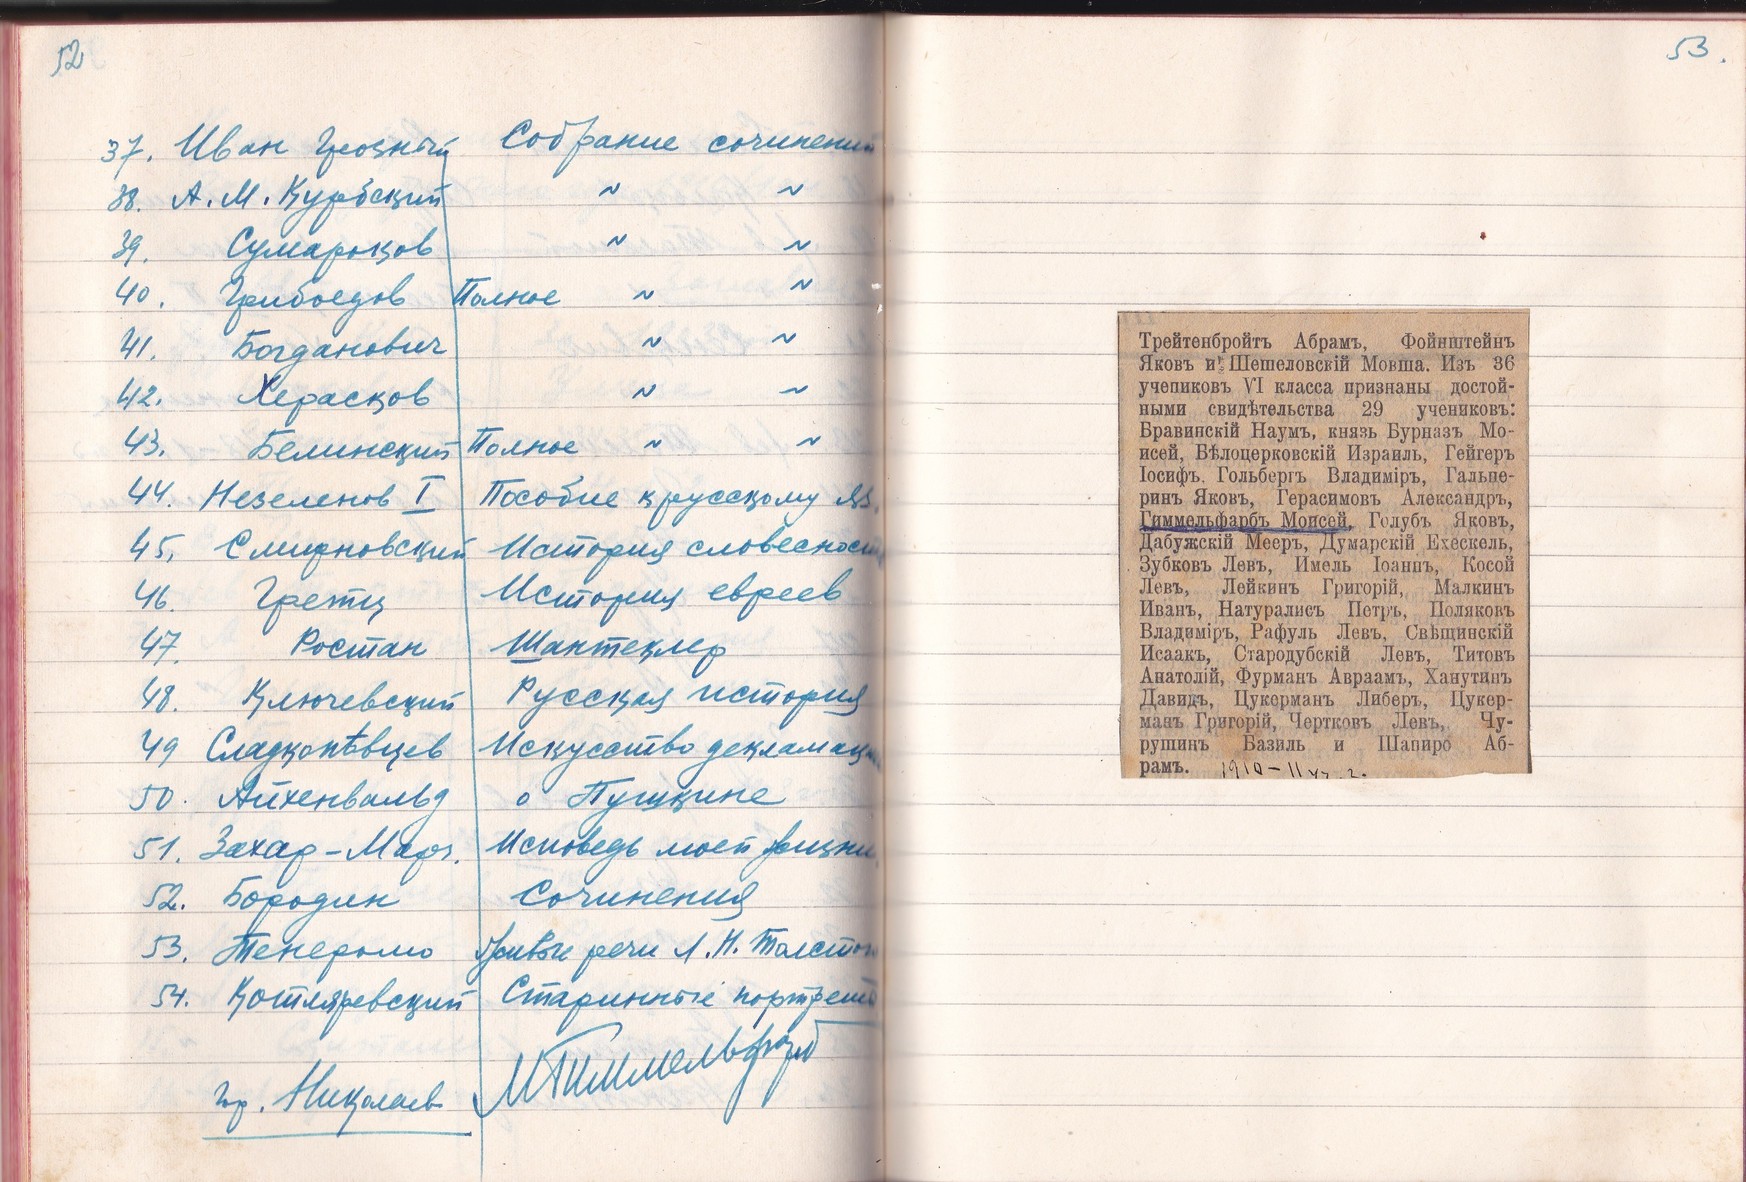 52
37. Иван Грозный Собрание сочинений
38. А. М. Курбский ~ ~
39. Сумароков ~ ~
40. Грибоедов Полное ~ ~
41. Богданович ~ ~
42. Херасков ~ ~
43. Белинский Полное ~ ~
44. Незеленов I Пособие к русскому яз.
45. Смирновский История словесности
46. Гретц История евреев
47. Ростан Шантеклер
48. Ключевский Русская история
49 Сладкопѣвцев Искусство декламации
50. Айхенвальд о Пушкине
51. Захар-Мазох. Исповедь моей жизни
52. Бородин Сочинения
53. Тенеромо Живые речи Л. Н. Толстого
54. Котляревский Старинные портреты
гор. Николаев МГиммельфарб
53.
Трейтенбройтъ Абрамъ, Фойнштейнъ
Яковъ и Шешеловскій Мовша. Изъ 36
учениковъ VI класса признаны достой-
ными свидѣтельства 29 учениковъ:
Бравинскій Наумъ, князь Бурназъ Мо-
исей, Бѣлоцерковскій Израиль, Гейгеръ
Іосифъ. Гольбергъ Владиміръ, Гальпе-
ринъ Яковъ, Герасимовъ Александръ,
Гиммельфарбъ Моисей, Голубъ Яковъ,
Дабужскій Мееръ, Думарскій Ехескель,
Зубковъ Левъ, Имель Іоаннъ, Косой
Левъ, Лейкинъ Григорій, Малкинъ
Иванъ, Натуралисъ Петръ, Поляковъ
Владиміръ, Рафуль Левъ, Свѣщинскій
Исаакъ, Стародубскій Левъ, Титовъ
Анатолій, Фурманъ Авраамъ, Ханутинъ
Давидъ, Цукерманъ Либеръ, Цукер-
манъ Григорій, Чертковъ Левъ, Чу-
рушинъ Базиль и Шапиро Аб-
рамъ. 1910-11 уч. г.